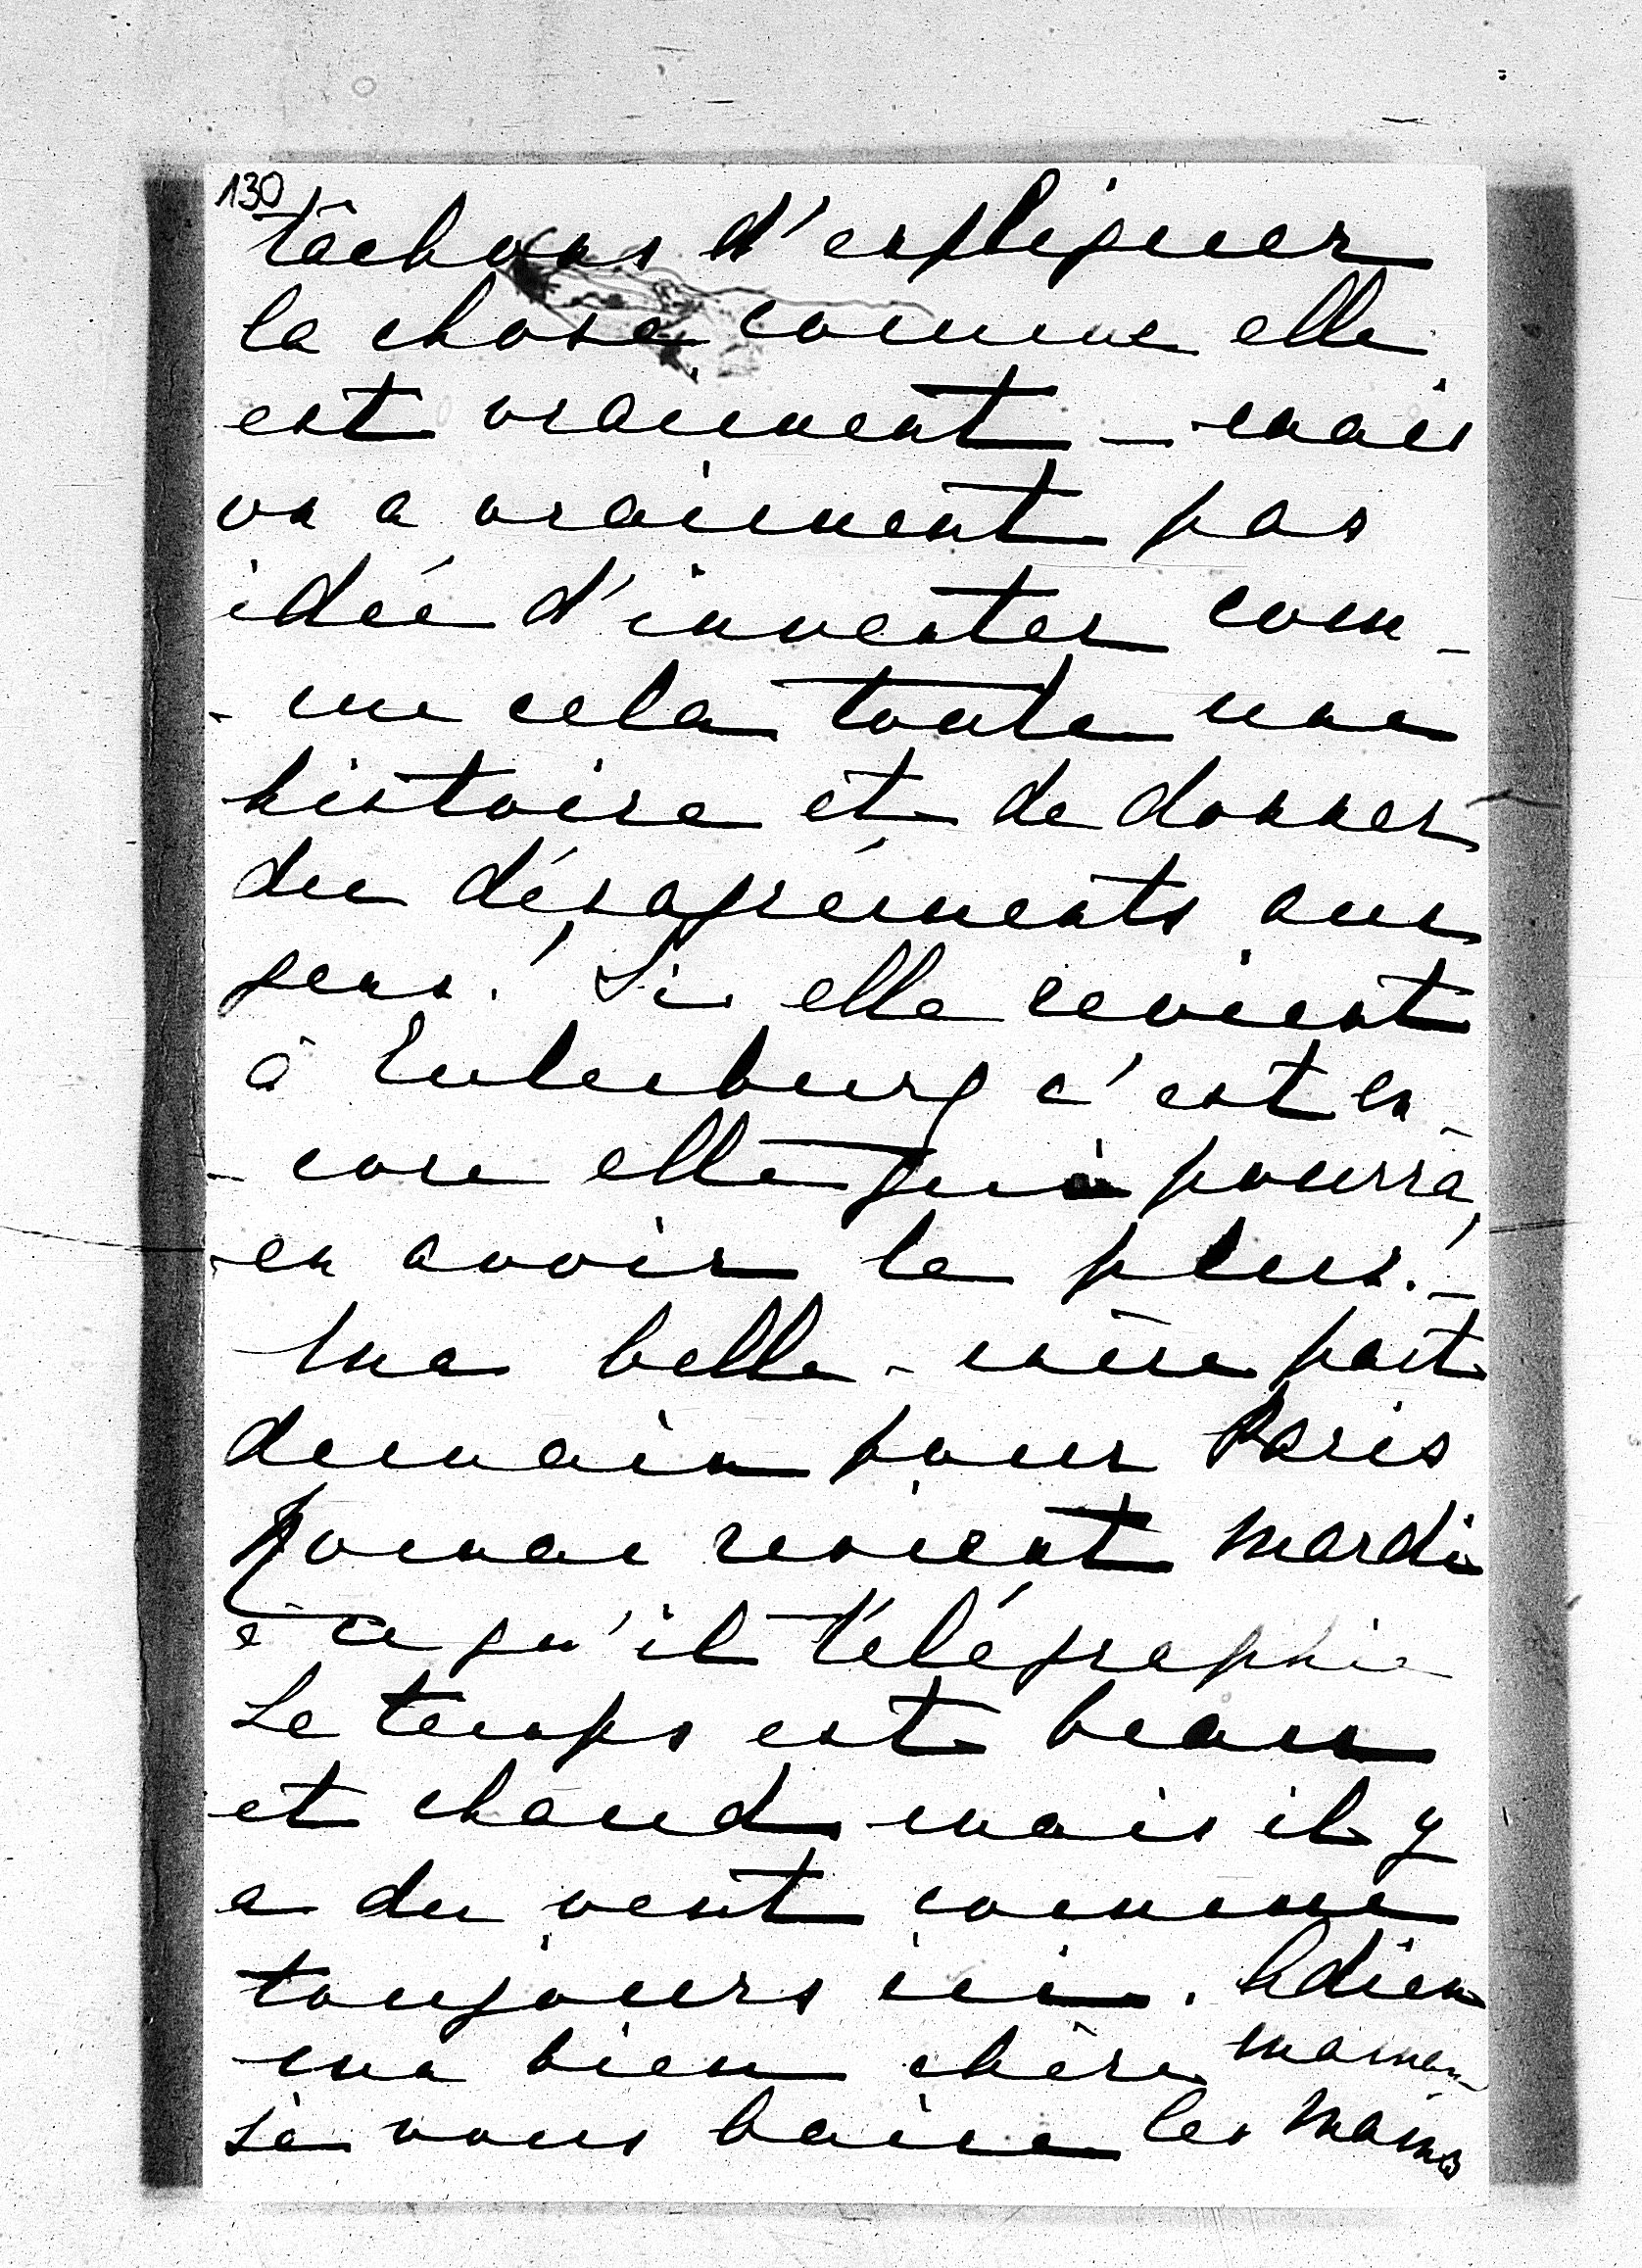 130
tâchons d'expliquer
la chose comme elle
est vraiment — mais
on a vraiment pas
idée d'inventer com-
-me cela toute une
histoire et de donner
du désagréments aux
gens! Si elle revient
à Eulenburg c'est en-
-core elle qui pourra
en avoir le plus! —
Ma belle-mère part
demain pour Paris
revient mardi
à ce qu'il télégraphie
Le temps est beau
et chaud mais il y
a du vent comme
toujours ici. Adieu
ma bien chère maman
je vous baise les mains